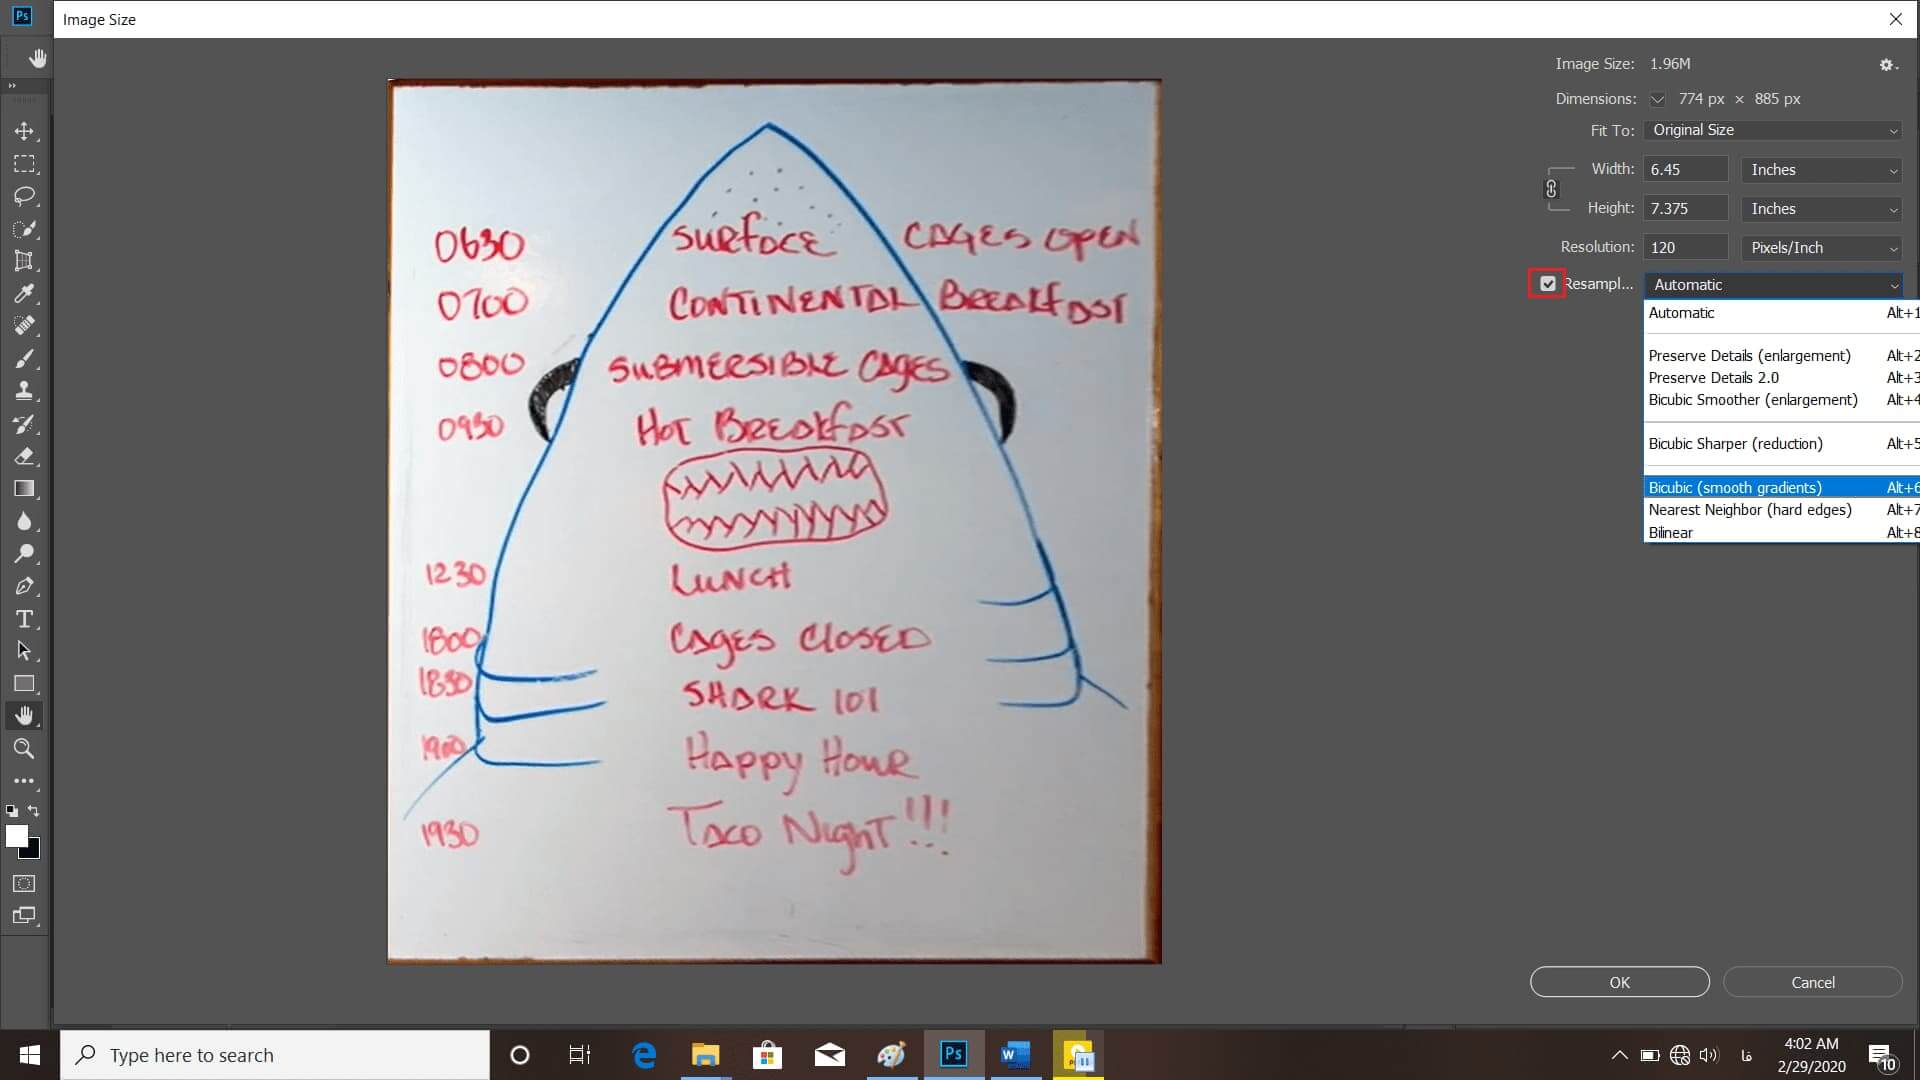 Ps
Image Size
Image Size: 1.96M
Dimensions: 774 px × 885 px
Fit To: Original Size
Width: 6.45 Inches
Height: 7.375 Inches
Resolution: 120 Pixels/Inch
Resampl... Automatic
Automatic Alt+1
Preserve Details (enlargement) Alt+2
Preserve Details 2.0 Alt+3
Bicubic Smoother (enlargement) Alt+4
Bicubic Sharper (reduction) Alt+5
Bicubic (smooth gradients) Alt+6
Nearest Neighbor (hard edges) Alt+7
Bilinear Alt+8
0630 SURFACE CAGES OPEN
0700 CONTINENTAL BREAKFAST
0800 SUBMERSIBLE CAGES
0930 HOT BREAKFAST
1230 LUNCH
1800 CAGES CLOSED
1830 SHARK 101
1900 HAPPY HOUR
1930 TACO NIGHT!!!
OK Cancel
Type here to search
Ps
W
فا
4:02 AM
2/29/2020
10